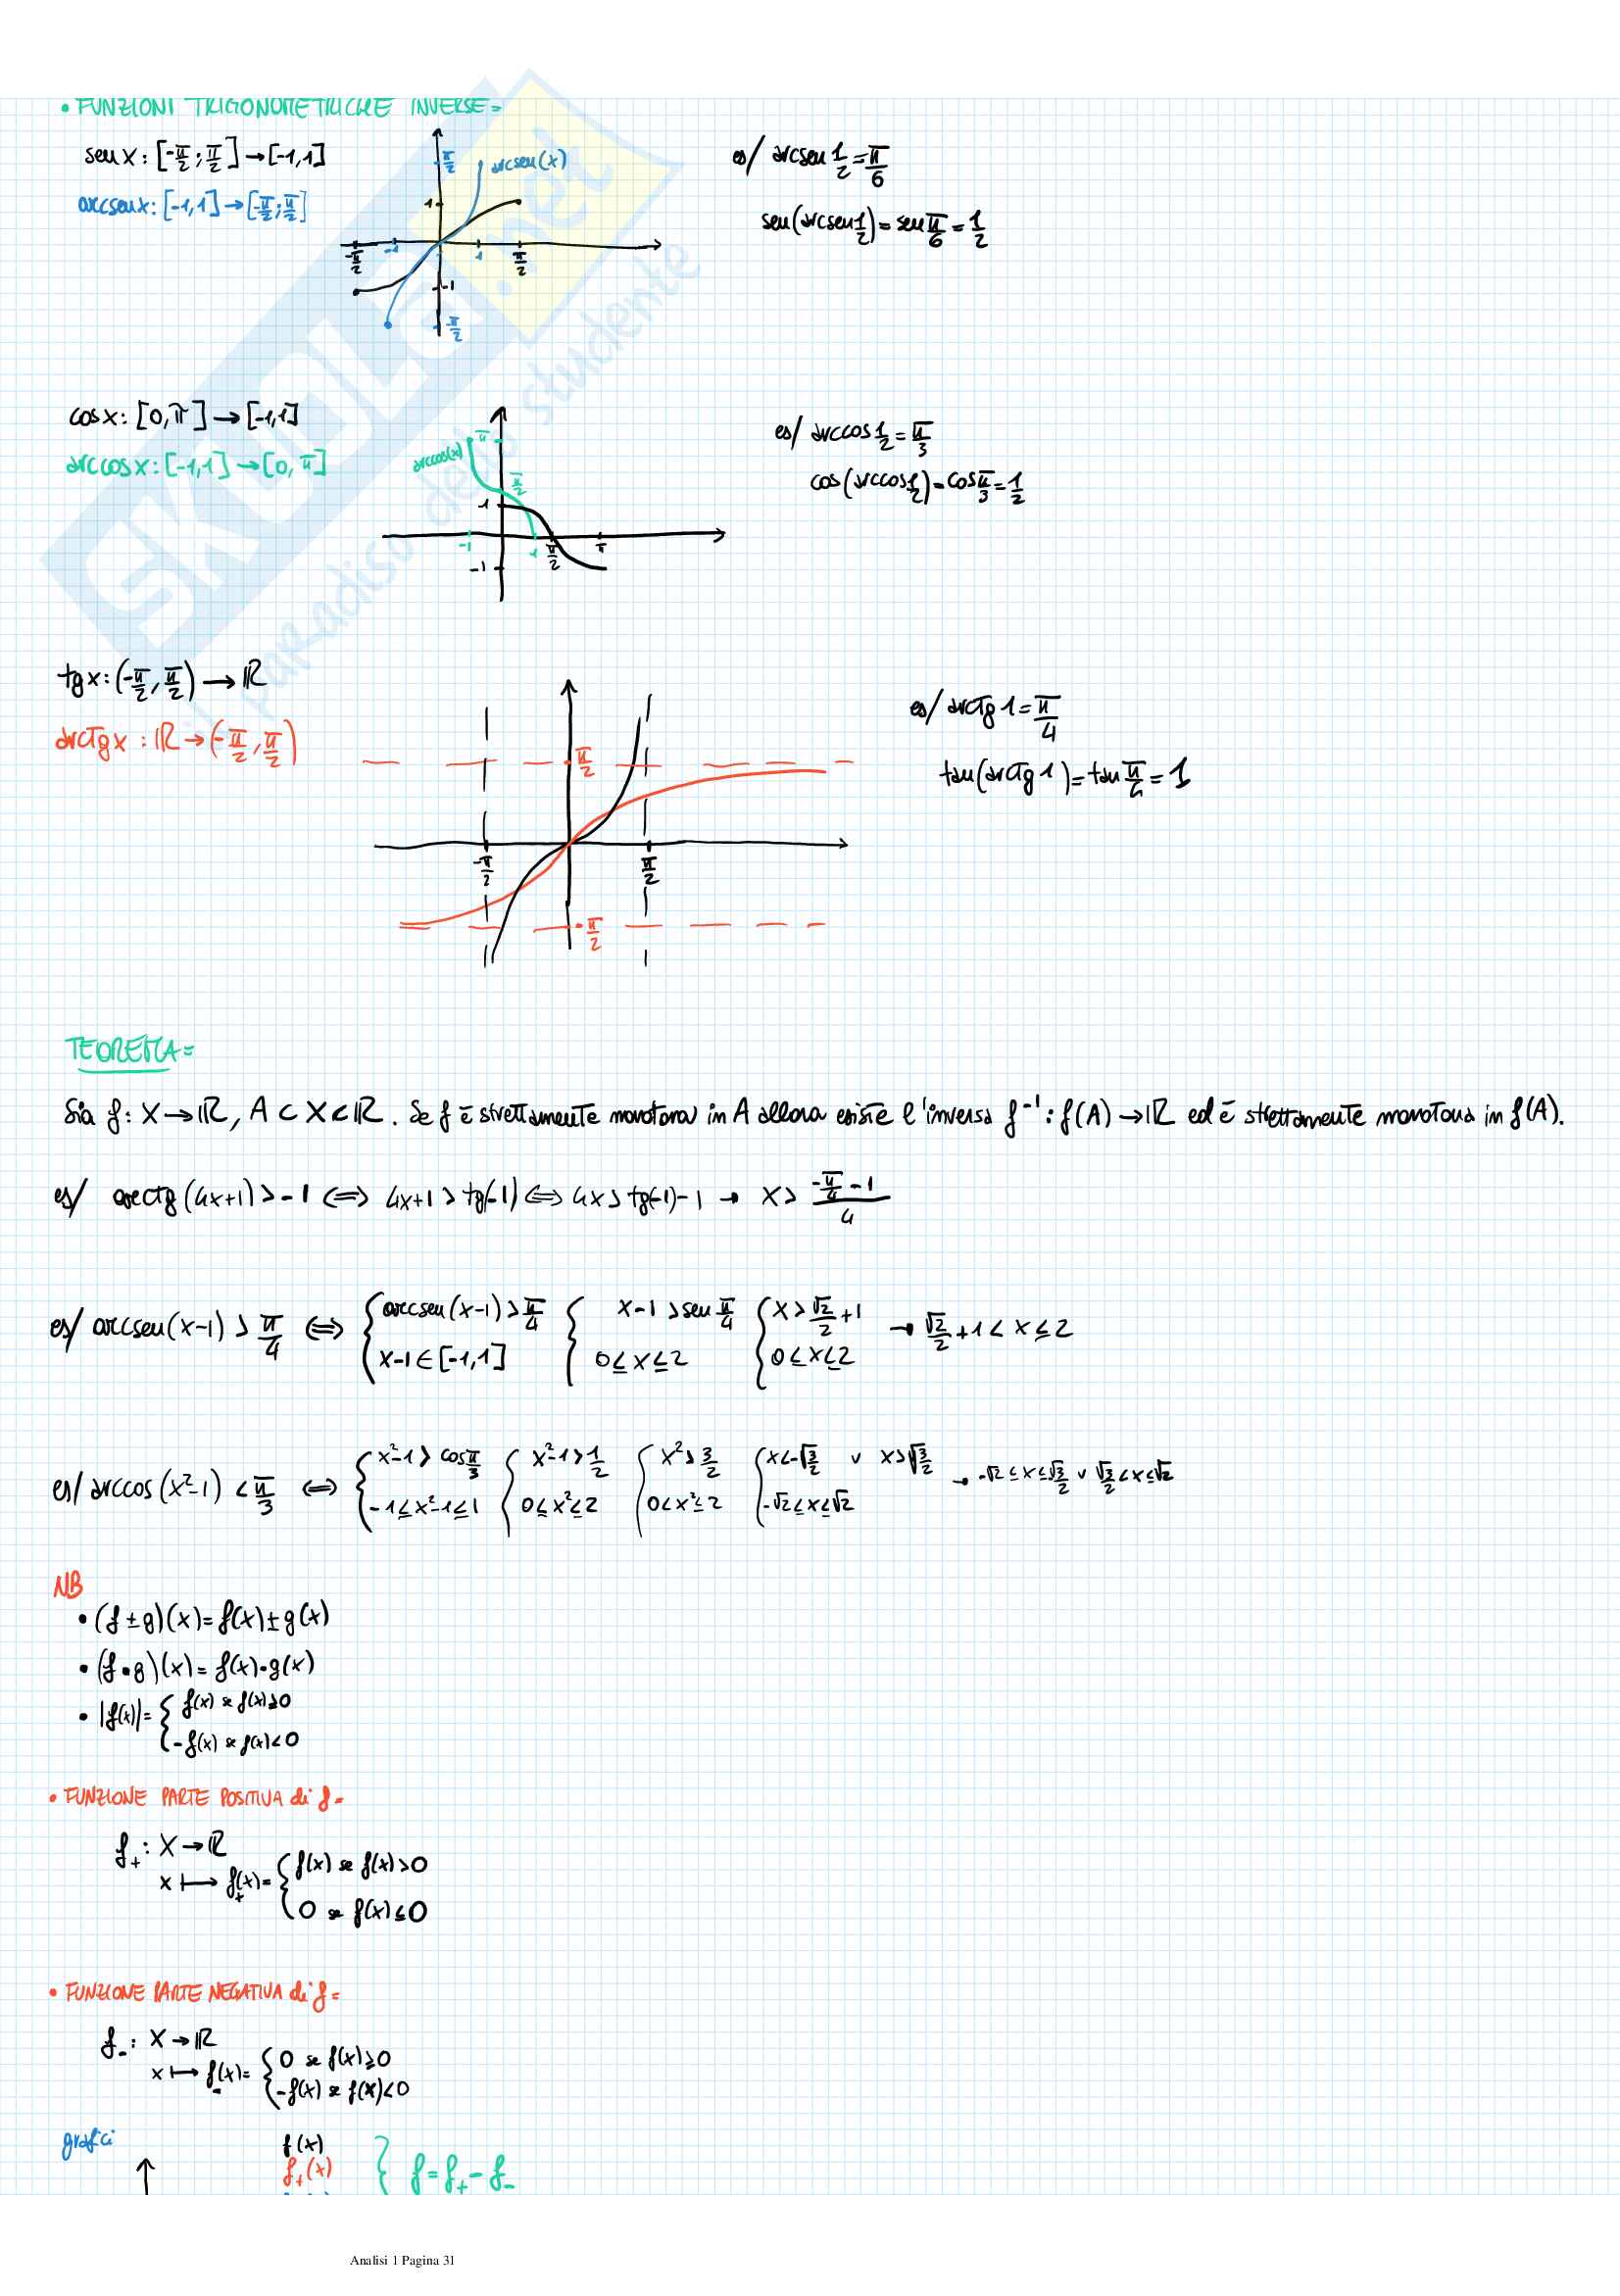 • FUNZIONI TRIGONOMETRICHE INVERSE=
sen x: [-π/2; π/2] → [-1,1]
arcsen x: [-1,1] → [-π/2; π/2]
π/2
arcsen(x)
1
-π/2 -1 1 π/2
-1
-π/2
es/ arcsen 1/2 = π/6
sen(arcsen 1/2) = sen π/6 = 1/2
cos x: [0, π] → [-1,1]
arccos x: [-1,1] → [0, π]
arccos(x)
π
π/2
1
-1 1 π/2 π
-1
es/ arccos 1/2 = π/3
cos(arccos 1/2) = cos π/3 = 1/2
tg x: (-π/2, π/2) → ℝ
arctg x: ℝ → (-π/2, π/2)
π/2
-π/2 π/2
-π/2
es/ arctg 1 = π/4
tan(arctg 1) = tan π/4 = 1
SKUOLA.net
il paradiso dello studente
TEOREMA=
Sia f: X → ℝ, A ⊂ X ⊂ ℝ. Se f è strettamente monotona in A allora esiste l'inversa f⁻¹: f(A) → ℝ ed è strettamente monotona in f(A).
es/ arctg(4x+1) > -1 ⟺ 4x+1 > tg(-1) ⟺ 4x > tg(-1) -1 → x > (-π/4 - 1)/4
es/ arcsen(x-1) > π/4 ⟺ { arcsen(x-1) > π/4 { x-1 > sen π/4 { x > √2/2 + 1 → √2/2 + 1 < x ≤ 2
x-1 ∈ [-1,1] 0 ≤ x ≤ 2 0 ≤ x ≤ 2
es/ arccos(x²-1) < π/3 ⟺ { x²-1 > cos π/3 { x²-1 > 1/2 { x² > 3/2 { x < -√3/2 ∨ x > √3/2 → -√2 ≤ x ≤ √3/2 ∨ √3/2 < x ≤ √2
-1 ≤ x²-1 ≤ 1 0 ≤ x² ≤ 2 0 < x² ≤ 2 -√2 ≤ x ≤ √2
NB
• (f ± g)(x) = f(x) ± g(x)
• (f • g)(x) = f(x) • g(x)
• |f(x)| = { f(x) se f(x) ≥ 0
-f(x) se f(x) < 0
• FUNZIONE PARTE POSITIVA di f=
f₊: X → ℝ
x ⟼ f₊(x) = { f(x) se f(x) > 0
0 se f(x) ≤ 0
• FUNZIONE PARTE NEGATIVA di f=
f₋: X → ℝ
x ⟼ f₋(x) = { 0 se f(x) ≥ 0
-f(x) se f(x) < 0
grafici
f(x)
f₊(x)
} f = f₊ - f₋
Analisi 1 Pagina 31